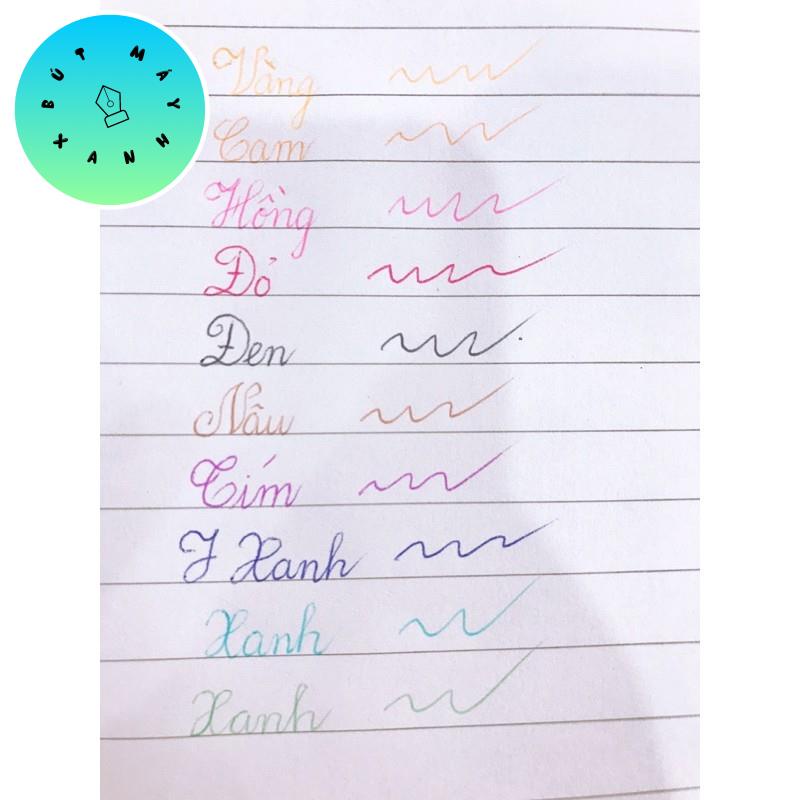 BÚT MÁY XANH
Vàng
Cam
Hồng
Đỏ
Đen
Nâu
Tím
J Xanh
Xanh
Xanh